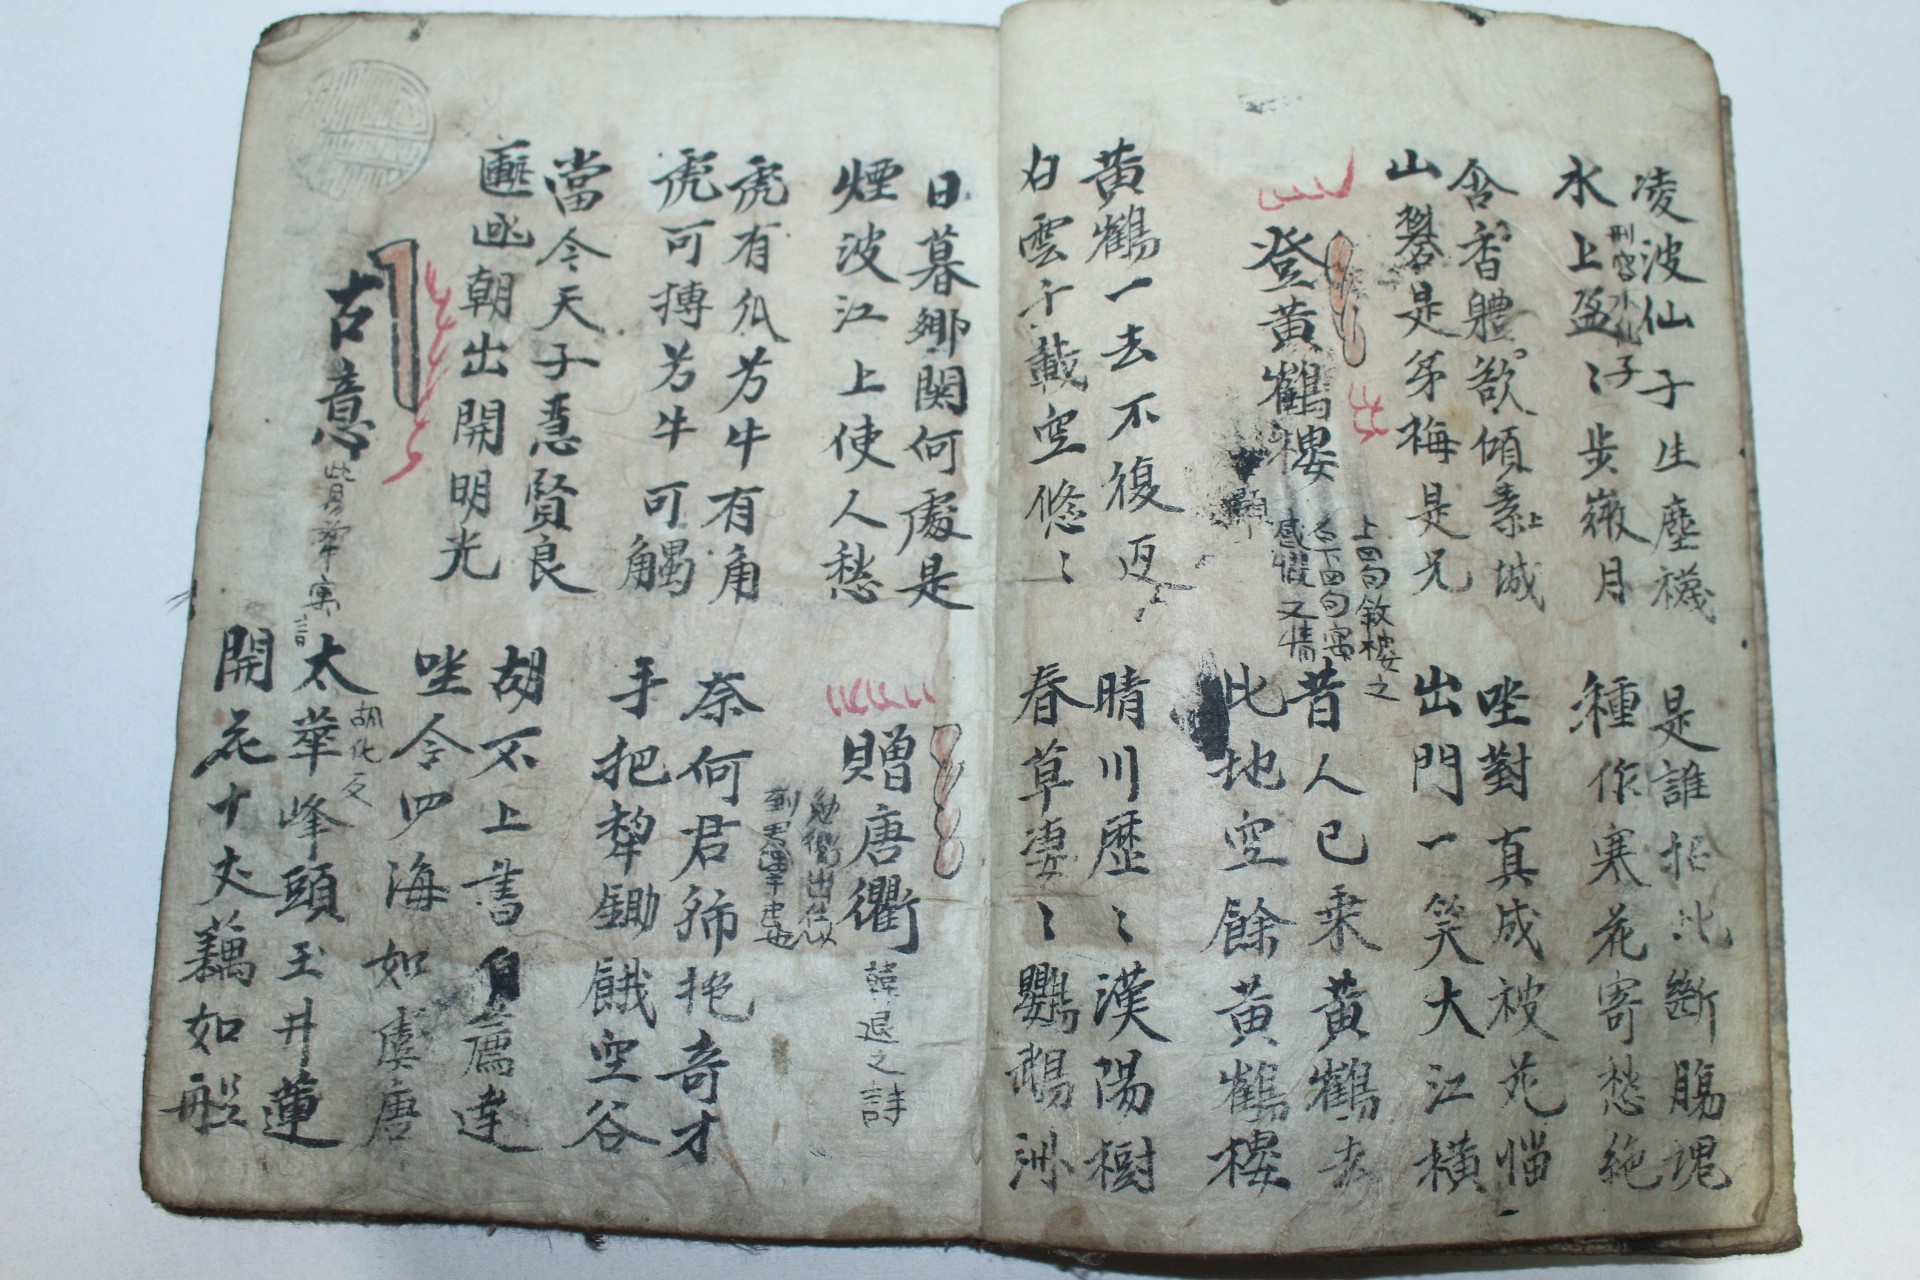 凌波仙子生塵襪
水上盈〻步微月
是誰招此斷腸魂
種作寒花寄愁絶
含香體欲傾素城
山礬是弟梅是兄
坐對真成被花惱
出門一笑大江橫
登黃鶴樓
上四句敘樓之
名下四句寓
感慨又情
昔人已乘黃鶴去
此地空餘黃鶴樓
黃鶴一去不復返
白雲千載空悠〻
晴川歷〻漢陽樹
春草凄〻鸚鵡洲
日暮鄉関何處是
煙波江上使人愁
贈唐衢 韓退之詩
勉衢出仕以
虎有瓜芳牛有角
虎可搏芳牛可觸
奈何君獨抱奇才
手把犁鋤餓空谷
當今天子急賢良
匭函朝出開明光
胡不上書自薦達
坐令四海如虞唐
古意
太華峰頭玉井蓮
胡化反
開花十丈藕如船